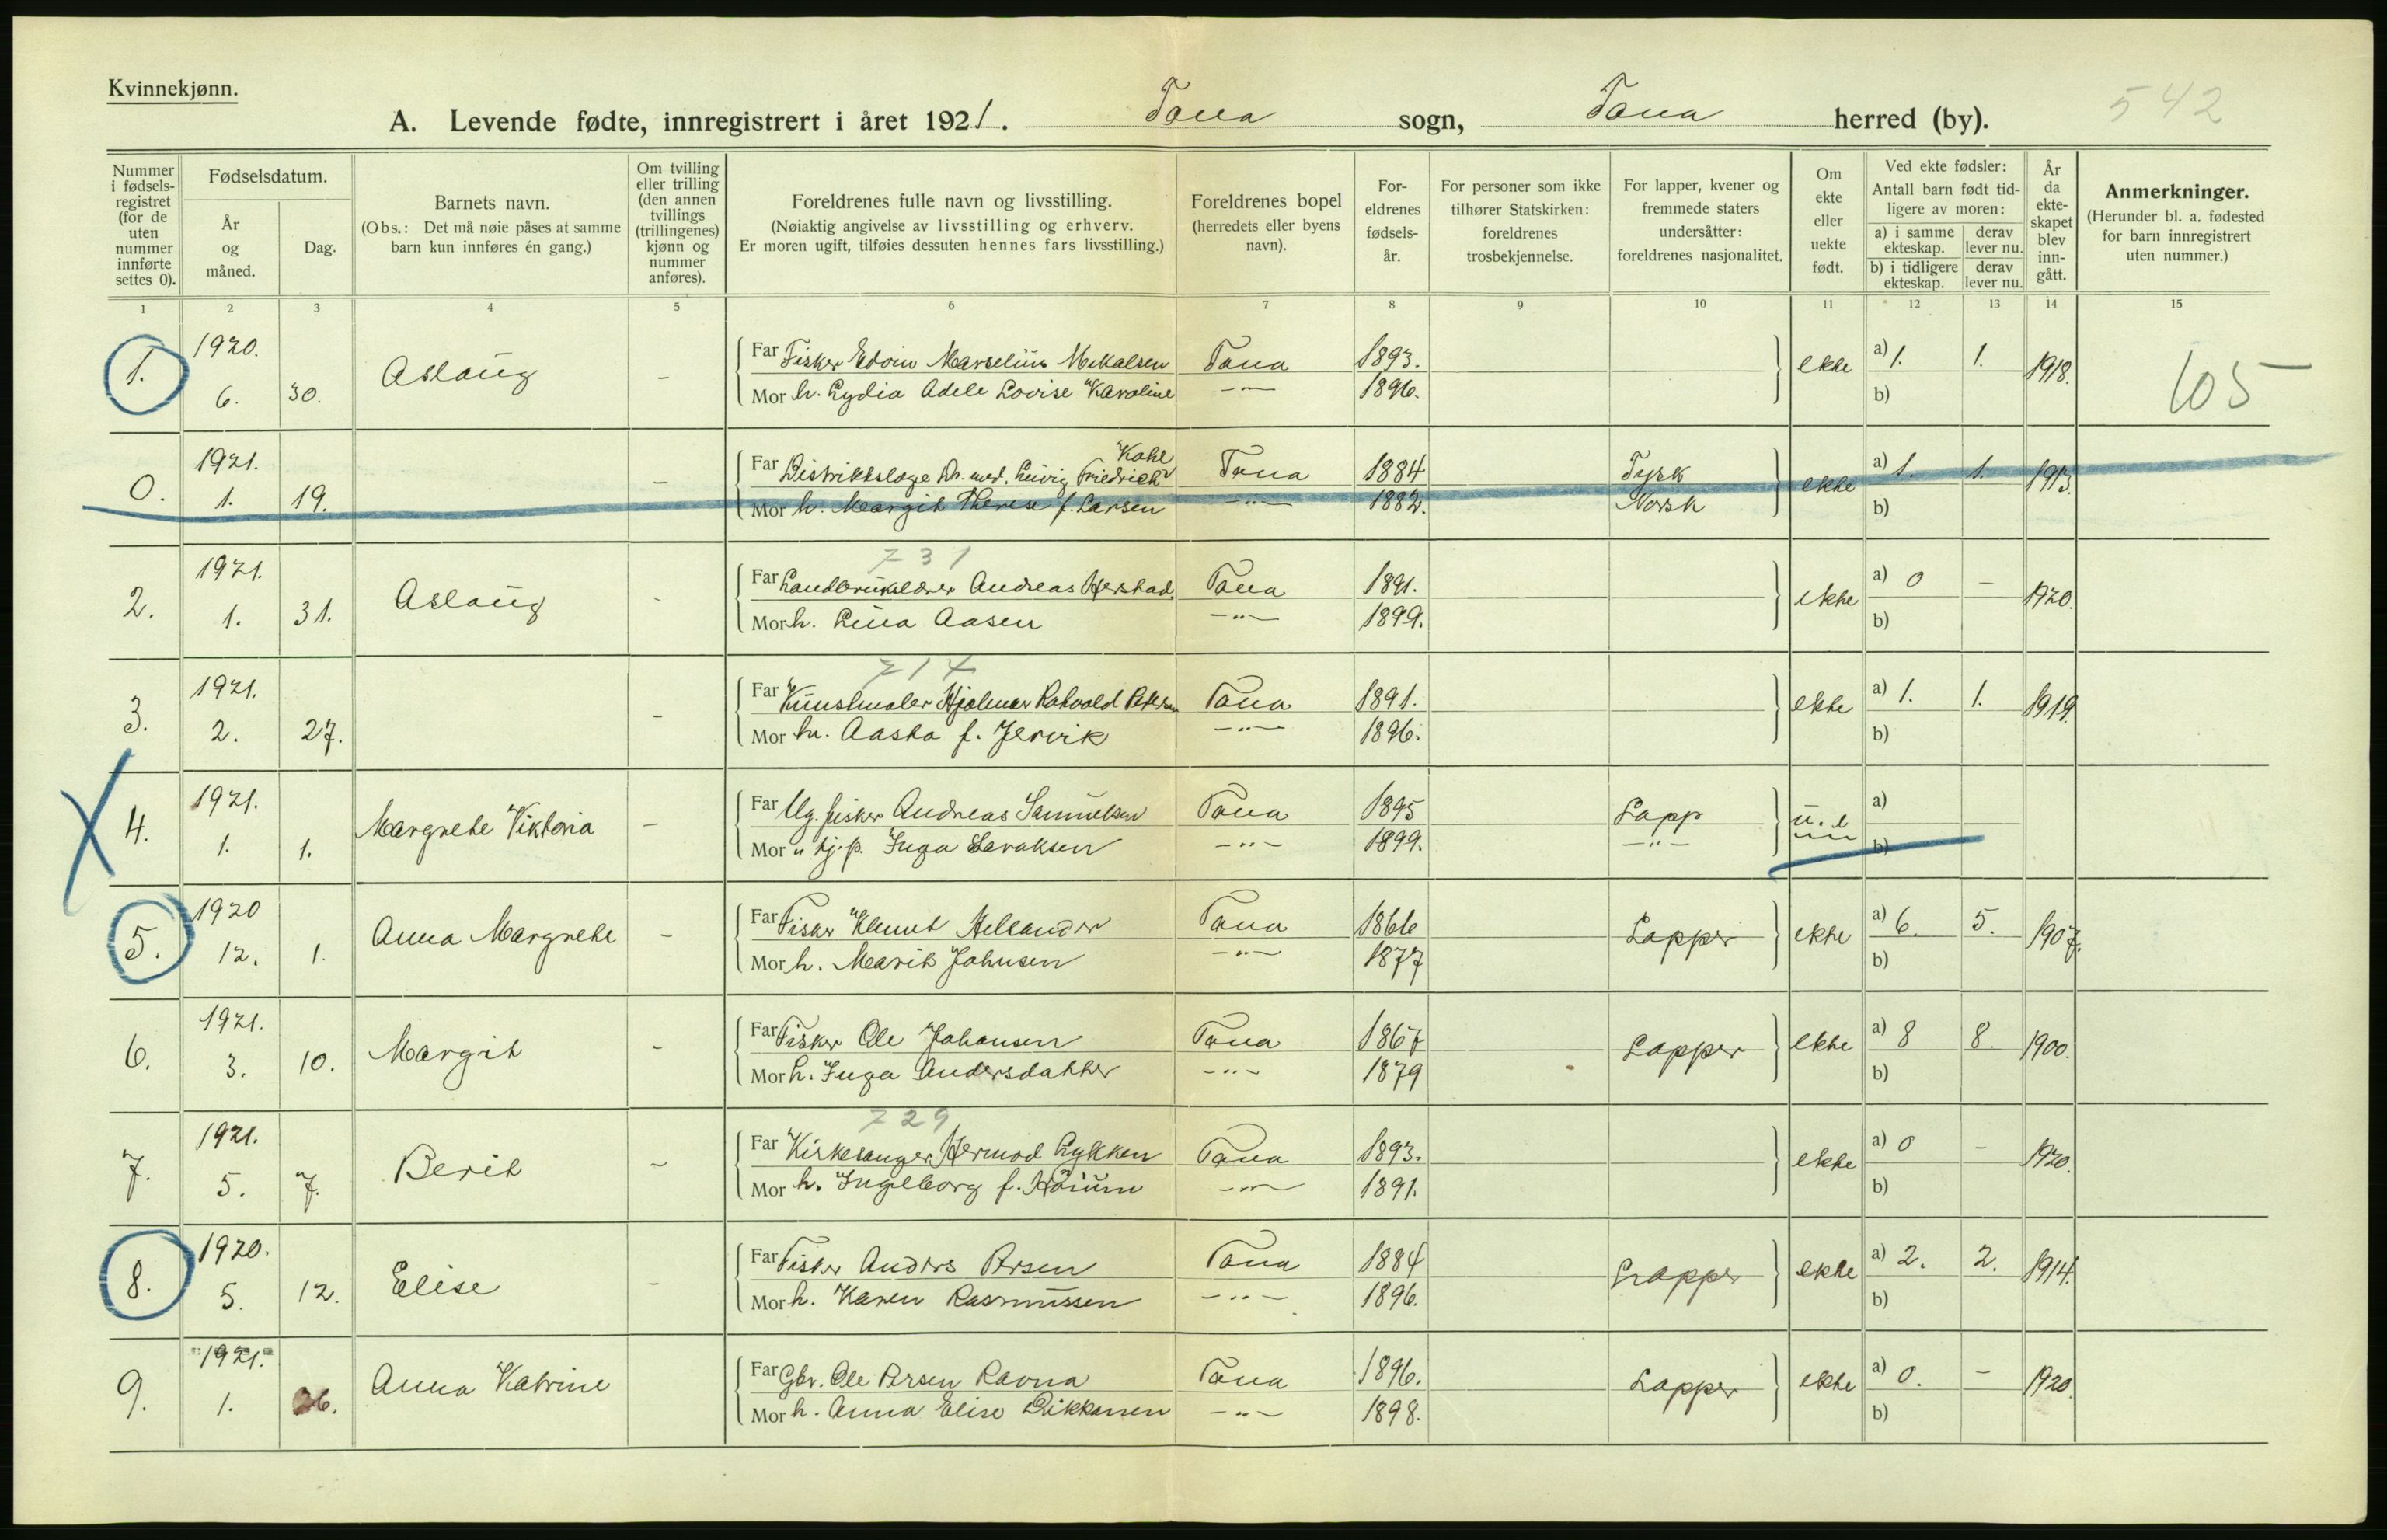 Kvinnekjønn.
A. Levende fødte, innregistrert i året 1921. Tana sogn, Tana herred (by). 542
Nummer i fødsels-registret (for de uten nummer innførte settes 0).
Fødselsdatum.
År og måned.
Dag.
Barnets navn.
(Obs.: Det må nøie påses at samme barn kun innføres én gang.)
Om tvilling eller trilling (den annen tvillings (trillingenes) kjønn og nummer anføres).
Foreldrenes fulle navn og livsstilling.
(Nøiaktig angivelse av livsstilling og erhverv.
Er moren ugift, tilføies dessuten hennes fars livsstilling.)
Foreldrenes bopel
(herredets eller byens navn).
For-eldrenes fødsels-år.
For personer som ikke tilhører Statskirken: foreldrenes trosbekjennelse.
For lapper, kvener og fremmede staters undersåtter: foreldrenes nasjonalitet.
Om ekte eller uekte født.
Ved ekte fødsler:
Antall barn født tid-ligere av moren:
a) i samme ekteskap. derav lever nu.
b) i tidligere ekteskap. derav lever nu.
År da ekte-skapet blev inn-gått.
Anmerkninger.
(Herunder bl. a. fødested for barn innregistrert uten nummer.)
1 2 3 4 5 6 7 8 9 10 11 12 13 14 15
1. 1920. 6. 30. Aslaug –
Far Fisker Edvin Marselius Mikalsen Tana 1893. ekte a) 1. 1. 1918. 105
Mor h. Lydia Adele Lovise Karoline –"– 1896. b)
0. 1921. 1. 19. –
Kohl
Far Distriktslæge Dr. med. Ludvig Friedrich Tana 1884 Tysk ekte a) 1. 1. 1913.
Mor h. Margit Therese f. Larsen –"– 1882. Norsk b)
731
2. 1921. 1. 31. Aslaug -
Far Landbrukslærer Andreas Herstad. Tana 1891. ekte a) 0 – 1920.
Mor h. Lina Aasen –"– 1899. b)
714
3. 1921. 2. 27. –
Far Kunstmaler Hjalmar Petersen Tana 1891. ekte a) 1. 1. 1919.
Mor hu. Aasta f. Jervik –"– 1896. b)
4. 1921. 1. 1. Margrete Viktoria –
Far Ug. fisker Andreas Samuelsen Tana 1895 Lapp u. e a)
Mor " tj.p. Inga Savaksen –"– 1899. –"– b)
5. 1920 12. 1. Anna Margrete –
Far Fisker Klemet Helander Tana 1866 Lapper ekte a) 6. 5. 1907.
Mor h. Marit Johnsen –"– 1877 b)
6. 1921. 3. 10. Margit -
Far Fisker Ole Johansen Tana 1867 Lapper ekte a) 8 8. 1900.
Mor h. Inga Andersdatter –"– 1879 b)
729
7. 1921. 5. 7. Berit –
Far Kirkesanger Hermod Lykken Tana 1893. ekte a) 0 – 1920.
Mor h. Ingeborg f. Höium –"– 1891. b)
8. 1920. 5. 12. Elise -
Far Fisker Anders Persen Tana 1884 Lapper ekte a) 2. 2. 1914.
Mor h. Karen Rasmussen –"– 1896. b)
9. 1921. 1. 26. Anna Katrine
Far Gbr. Ole Persen Ravna Tana 1896. Lapper ekte a) 0. – 1920.
Mor h. Anna Elise Dikkanen –"– 1898. b)